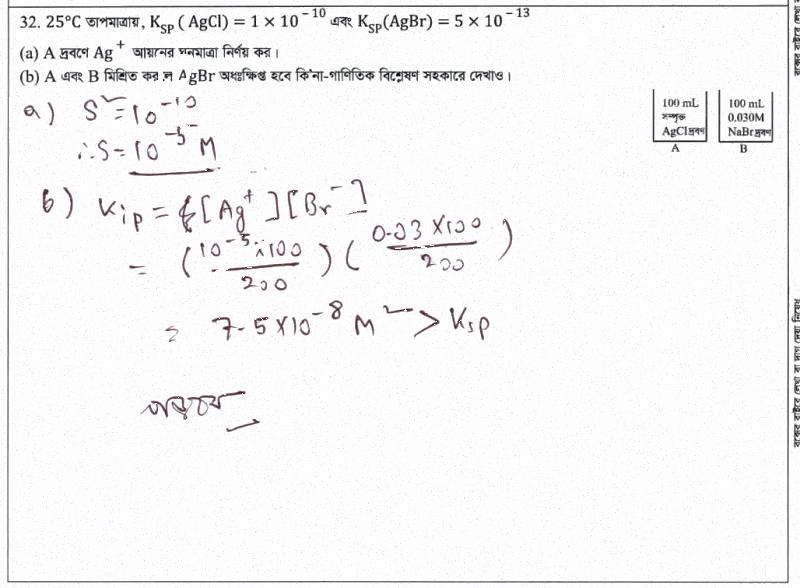 32. 25°C তাপমাত্রায়, K_SP ( AgCl) = 1 × 10⁻¹⁰ এবং K_SP(AgBr) = 5 × 10⁻¹³
(a) A দ্রবণে Ag⁺ আয়নের ঘনমাত্রা নির্ণয় কর।
(b) A এবং B মিশ্রিত করলে AgBr অধঃক্ষিপ্ত হবে কি'না-গাণিতিক বিশ্লেষণ সহকারে দেখাও।
100 mL
সম্পৃক্ত
AgCl দ্রবণ
A
100 mL
0.030M
NaBr দ্রবণ
B
a) S² = 10⁻¹⁰
∴S = 10⁻⁵ M
b) Kip = [Ag⁺][Br⁻]
= (10⁻⁵×100/200) (0.03×100/200)
= 7.5×10⁻⁸ M² > Ksp